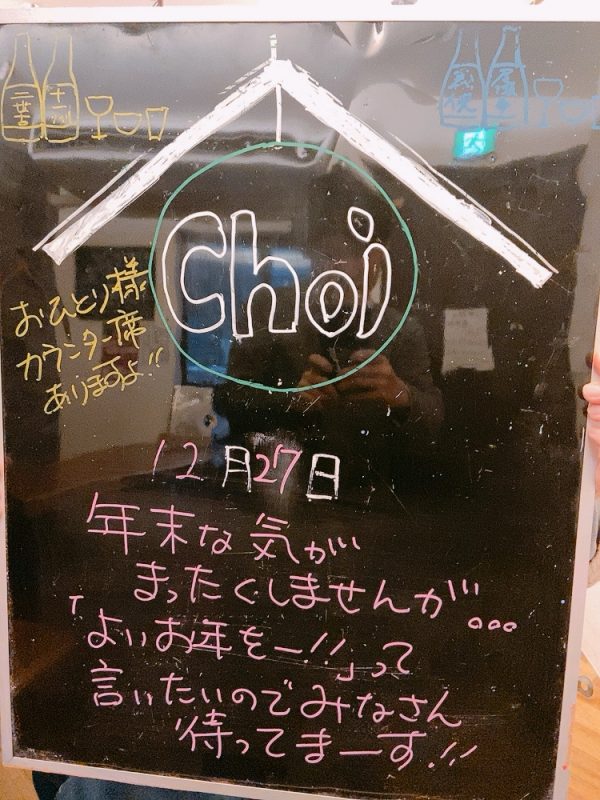 Choi
おひとり様
カウンター席
ありますよ!!
12月27日
年末な気が
まったくしませんが…
「よいお年をー!!」って
言いたいのでみなさん
待ってまーす!!